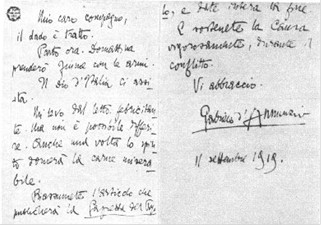 Mio caro compagno,
il dado è tratto.
Parto ora. Domattina
prenderò Fiume con le armi.
Il Dio d'Italia ci assi-
sta.
Mi levo dal letto febbricitan-
te. Ma non è possibile differi-
re. Anche una volta lo spiri-
to domerà la carne misera-
bile.
Riassumete l'articolo che
pubblicherà la Gazzetta del Popo-
lo, e date intera la fine
E sostenete la Causa
vigorosamente, durante il
conflitto.
Vi abbraccio.
Gabriele d'Annunzio
11 settembre 1919.